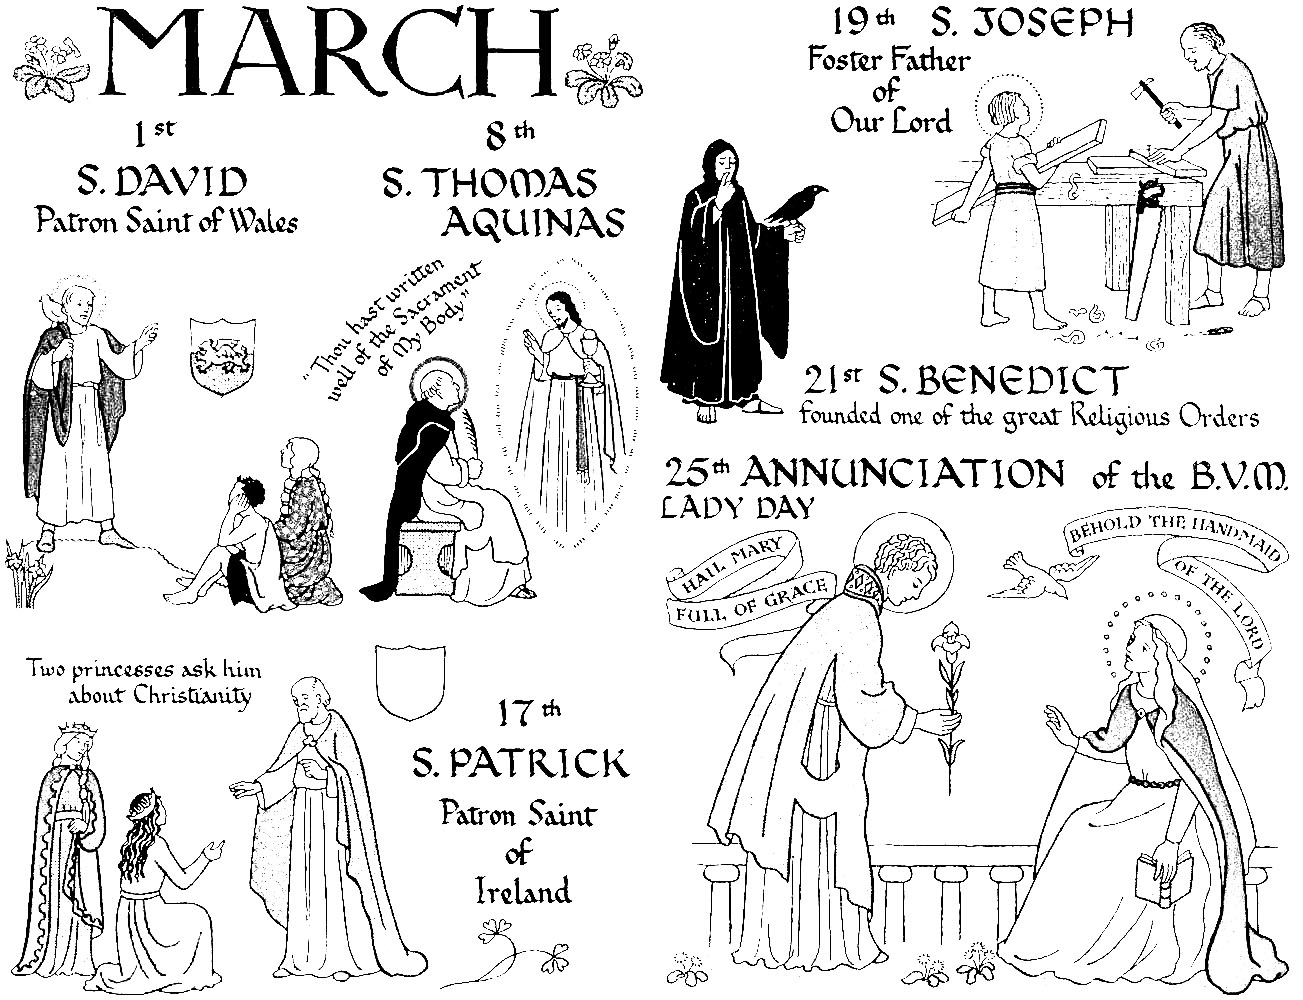 MARCH
1st
S. DAVID
Patron Saint of Wales
8th
S. THOMAS
AQUINAS
"Thou hast written
well of the Sacrament
of My Body"
Two princesses ask him
about Christianity
17th
S. PATRICK
Patron Saint
of
Ireland
19th S. JOSEPH
Foster Father
of
Our Lord
21st S. BENEDICT
founded one of the great Religious Orders
25th ANNUNCIATION of the B.V.M.
LADY DAY
HAIL MARY
FULL OF GRACE
BEHOLD THE HANDMAID
OF THE LORD